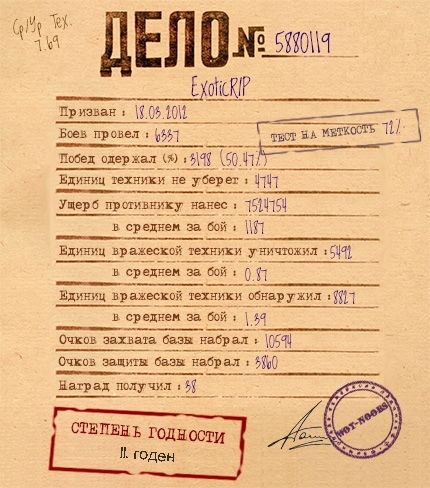 Ср/Ур Тех.
7.69
ДЕЛО № 5880119
ExoticRIP
Призван : 18.03.2012
Боев провел : 6337
ТЕСТ НА МЕТКОСТЬ 72%
Побед одержал (%) : 3198 (50.47%)
Единиц техники не уберег : 4747
Ущерб противнику нанес : 7524754
в среднем за бой : 1187
Единиц вражеской техники уничтожил : 5492
в среднем за бой : 0.87
Единиц вражеской техники обнаружил : 8827
в среднем за бой : 1.39
Очков захвата базы набрал : 10594
Очков защиты базы набрал : 3860
Наград получил : 38
СТЕПЕНЬ ГОДНОСТИ
II. годен
WOT-NOOBS